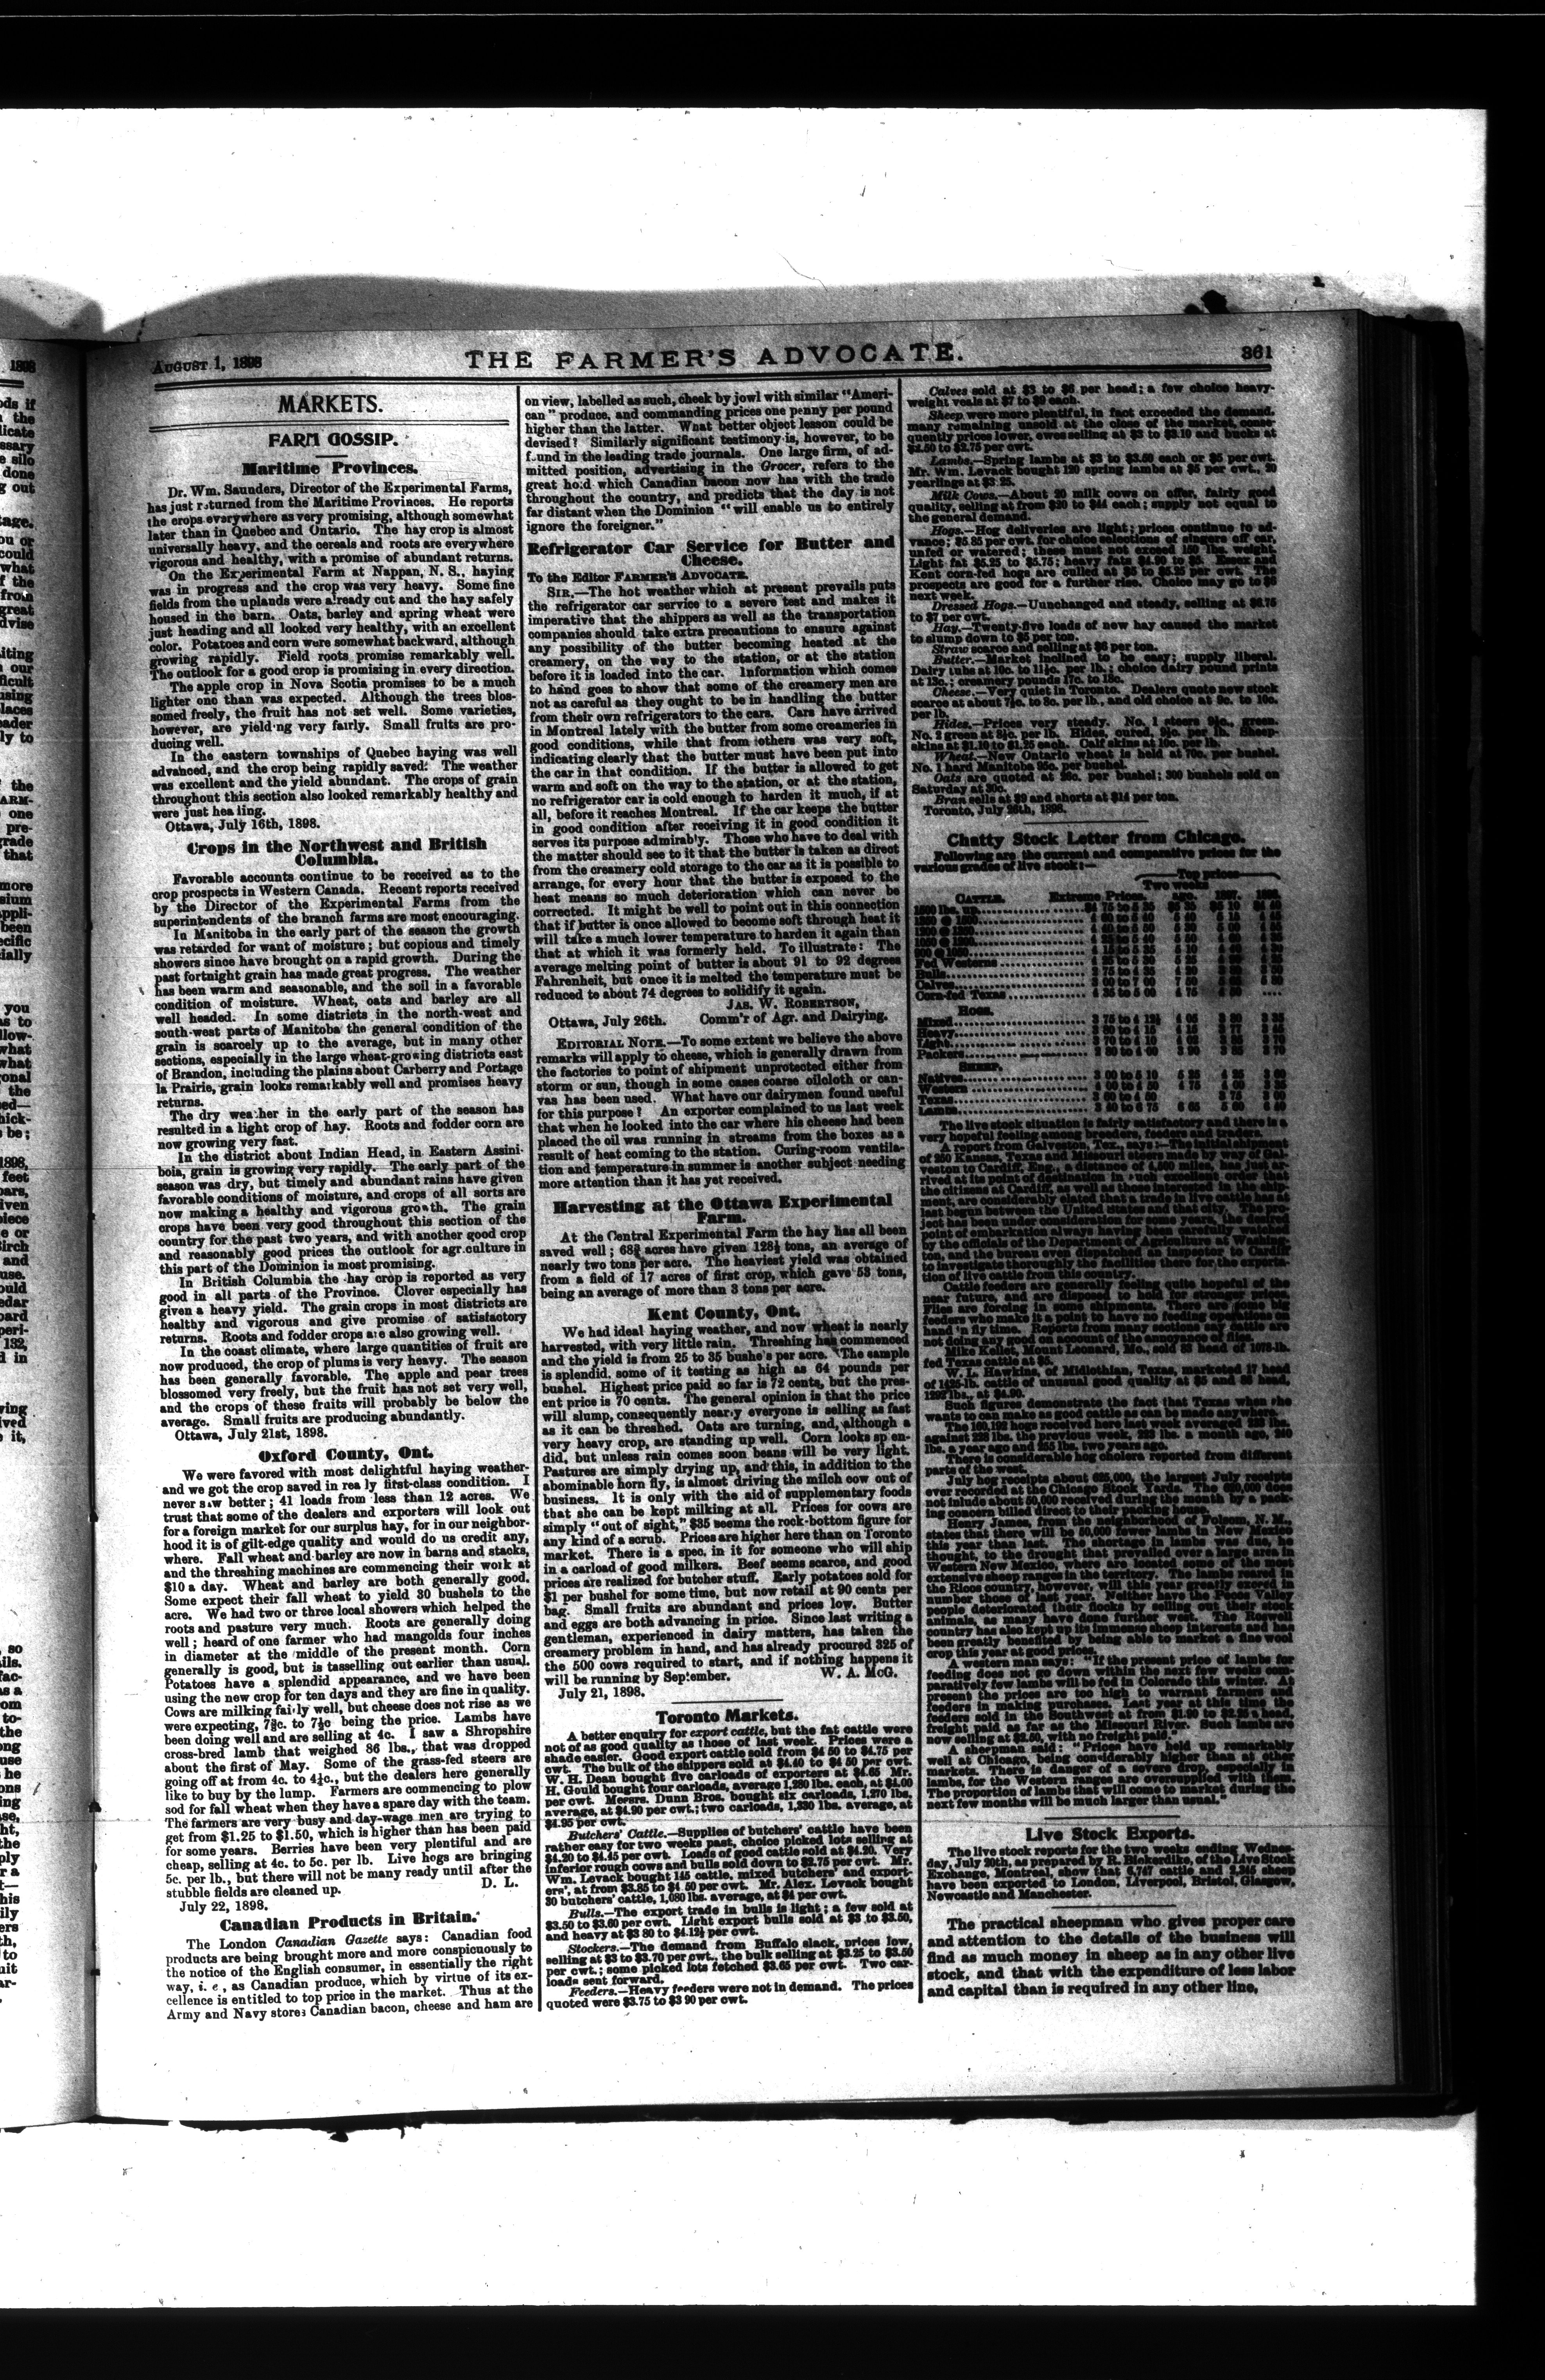 AUGUST 1, 1898
THE FARMER'S ADVOCATE.
361
MARKETS.
FARM GOSSIP.
Maritime Provinces.
Dr. Wm. Saunders, Director of the Experimental Farms,
has just returned from the Maritime Provinces. He reports
the crops everywhere as very promising, although somewhat
later than in Quebec and Ontario. The hay crop is almost
universally heavy, and the cereals and roots are everywhere
vigorous and healthy, with a promise of abundant returns.
On the Experimental Farm at Nappan, N. S., haying
was in progress and the crop was very heavy. Some fine
fields from the uplands were already cut and the hay safely
housed in the barn. Oats, barley and spring wheat were
just heading and all looked very healthy, with an excellent
color. Potatoes and corn were somewhat backward, although
growing rapidly. Field roots promise remarkably well.
The outlook for a good crop is promising in every direction.
The apple crop in Nova Scotia promises to be a much
lighter one than was expected. Although the trees blos-
somed freely, the fruit has not set well. Some varieties,
however, are yield'ng very fairly. Small fruits are pro-
ducing well.
In the eastern townships of Quebec haying was well
advanced, and the crop being rapidly saved. The weather
was excellent and the yield abundant. The crops of grain
throughout this section also looked remarkably healthy and
were just hea ling.
Ottawa, July 16th, 1898.
Crops in the Northwest and British
Columbia.
Favorable accounts continue to be received as to the
crop prospects in Western Canada. Recent reports received
by the Director of the Experimental Farms from the
superintendents of the branch farms are most encouraging.
In Manitoba in the early part of the season the growth
was retarded for want of moisture; but copious and timely
showers since have brought on a rapid growth. During the
past fortnight grain has made great progress. The weather
has been warm and seasonable, and the soil in a favorable
condition of moisture. Wheat, oats and barley are all
well headed. In some districts in the north-west and
south-west parts of Manitoba the general condition of the
grain is scarcely up to the average, but in many other
sections, especially in the large wheat-growing districts east
of Brandon, including the plains about Carberry and Portage
la Prairie, grain looks remarkably well and promises heavy
returns.
The dry weather in the early part of the season has
resulted in a light crop of hay. Roots and fodder corn are
now growing very fast.
In the district about Indian Head, in Eastern Assini-
boia, grain is growing very rapidly. The early part of the
season was dry, but timely and abundant rains have given
favorable conditions of moisture, and crops of all sorts are
now making a healthy and vigorous growth. The grain
crops have been very good throughout this section of the
country for the past two years, and with another good crop
and reasonably good prices the outlook for agr.culture in
this part of the Dominion is most promising.
In British Columbia the hay crop is reported as very
good in all parts of the Province. Clover especially has
given a heavy yield. The grain crops in most districts are
healthy and vigorous and give promise of satisfactory
returns. Roots and fodder crops are also growing well.
In the coast climate, where large quantities of fruit are
now produced, the crop of plums is very heavy. The season
has been generally favorable. The apple and pear trees
blossomed very freely, but the fruit has not set very well,
and the crops of these fruits will probably be below the
average. Small fruits are producing abundantly.
Ottawa, July 21st, 1898.
Oxford County, Ont.
We were favored with most delightful haying weather-
and we got the crop saved in rea ly first-class condition. I
never saw better; 41 loads from less than 12 acres. We
trust that some of the dealers and exporters will look out
for a foreign market for our surplus hay, for in our neighbor-
hood it is of gilt-edge quality and would do us credit any,
where. Fall wheat and barley are now in barns and stacks,
and the threshing machines are commencing their work at
$10 a day. Wheat and barley are both generally good.
Some expect their fall wheat to yield 30 bushels to the
acre. We had two or three local showers which helped the
roots and pasture very much. Roots are generally doing
well; heard of one farmer who had mangolds four inches
in diameter at the middle of the present month. Corn
generally is good, but is tasselling out earlier than usual.
Potatoes have a splendid appearance, and we have been
using the new crop for ten days and they are fine in quality.
Cows are milking fai·ly well, but cheese does not rise as we
were expecting, 7⅜c. to 7½c being the price. Lambs have
been doing well and are selling at 4c. I saw a Shropshire
cross-bred lamb that weighed 86 lbs., that was dropped
about the first of May. Some of the grass-fed steers are
going off at from 4c. to 4½c., but the dealers here generally
like to buy by the lump. Farmers are commencing to plow
sod for fall wheat when they have a spare day with the team.
The farmers are very busy and day-wage men are trying to
get from $1.25 to $1.50, which is higher than has been paid
for some years. Berries have been very plentiful and are
cheap, selling at 4c. to 5c. per lb. Live hogs are bringing
5c. per lb., but there will not be many ready until after the
stubble fields are cleaned up. D. L.
July 22, 1898.
Canadian Products in Britain.
The London Canadian Gazette says: Canadian food
products are being brought more and more conspicuously to
the notice of the English consumer, in essentially the right
way, i. e, as Canadian produce, which by virtue of its ex-
cellence is entitled to top price in the market. Thus at the
Army and Navy stores Canadian bacon, cheese and ham are
on view, labelled as such, cheek by jowl with similar "Ameri-
can" produce, and commanding prices one penny per pound
higher than the latter. What better object lesson could be
devised? Similarly significant testimony is, however, to be
f.und in the leading trade journals. One large firm, of ad-
mitted position, advertising in the Grocer, refers to the
great hold which Canadian bacon now has with the trade
throughout the country, and predicts that the day is not
far distant when the Dominion "will enable us to entirely
ignore the foreigner."
Refrigerator Car Service for Butter and
Cheese.
To the Editor FARMER'S ADVOCATE.
SIR,—The hot weather which at present prevails puts
the refrigerator car service to a severe test and makes it
imperative that the shippers as well as the transportation
companies should take extra precautions to ensure against
any possibility of the butter becoming heated at the
creamery, on the way to the station, or at the station
before it is loaded into the car. Information which comes
to hand goes to show that some of the creamery men are
not as careful as they ought to be in handling the butter
from their own refrigerators to the cars. Cars have arrived
in Montreal lately with the butter from some creameries in
good conditions, while that from others was very soft,
indicating clearly that the butter must have been put into
the car in that condition. If the butter is allowed to get
warm and soft on the way to the station, or at the station,
no refrigerator car is cold enough to harden it much, if at
all, before it reaches Montreal. If the car keeps the butter
in good condition after receiving it in good condition it
serves its purpose admirably. Those who have to deal with
the matter should see to it that the butter is taken as direct
from the creamery cold storage to the car as it is possible to
arrange, for every hour that the butter is exposed to the
heat means so much deterioration which can never be
corrected. It might be well to point out in this connection
that if butter is once allowed to become soft through heat it
will take a much lower temperature to harden it again than
that at which it was formerly held. To illustrate: The
average melting point of butter is about 91 to 92 degrees
Fahrenheit, but once it is melted the temperature must be
reduced to about 74 degrees to solidify it again.
JAS. W. ROBERTSON,
Ottawa, July 26th. Comm'r of Agr. and Dairying.
EDITORIAL NOTE.—To some extent we believe the above
remarks will apply to cheese, which is generally drawn from
the factories to point of shipment unprotected either from
storm or sun, though in some cases coarse oilcloth or can-
vas has been used. What have our dairymen found useful
for this purpose? An exporter complained to us last week
that when he looked into the car where his cheese had been
placed the oil was running in streams from the boxes as a
result of heat coming to the station. Curing-room ventila-
tion and temperature in summer is another subject needing
more attention than it has yet received.
Harvesting at the Ottawa Experimental
Farm.
At the Central Experimental Farm the hay has all been
saved well; 68¾ acres have given 128½ tons, an average of
nearly two tons per acre. The heaviest yield was obtained
from a field of 17 acres of first crop, which gave 53 tons,
being an average of more than 3 tons per acre.
Kent County, Ont.
We had ideal haying weather, and now wheat is nearly
harvested, with very little rain. Threshing has commenced
and the yield is from 25 to 35 bushe's per acre. The sample
is splendid, some of it testing as high as 64 pounds per
bushel. Highest price paid so far is 72 cents, but the pres-
ent price is 70 cents. The general opinion is that the price
will slump, consequently nearly everyone is selling as fast
as it can be threshed. Oats are turning, and, although a
very heavy crop, are standing up well. Corn looks sp en-
did, but unless rain comes soon beans will be very light.
Pastures are simply drying up, and this, in addition to the
abominable horn fly, is almost driving the milch cow out of
business. It is only with the aid of supplementary foods
that she can be kept milking at all. Prices for cows are
simply "out of sight," $35 seems the rock-bottom figure for
any kind of a scrub. Prices are higher here than on Toronto
market. There is a spec. in it for someone who will ship
in a carload of good milkers. Beef seems scarce, and good
prices are realized for butcher stuff. Early potatoes sold for
$1 per bushel for some time, but now retail at 90 cents per
bag. Small fruits are abundant and prices low. Butter
and eggs are both advancing in price. Since last writing a
gentleman, experienced in dairy matters, has taken the
creamery problem in hand, and has already procured 325 of
the 500 cows required to start, and if nothing happens it
will be running by September. W. A. McG.
July 21, 1898.
Toronto Markets.
A better enquiry for export cattle, but the fat cattle were
not of as good quality as those of last week. Prices were a
shade easier. Good export cattle sold from $4 50 to $4.75 per
cwt. The bulk of the shippers sold at $4.40 to $4 50 per cwt.
W. H. Dean bought five carloads of exporters at $4.65 Mr.
H. Gould bought four carloads, average 1,280 lbs. each, at $4.00
per cwt. Messrs. Dunn Bros. bought six carloads, 1,270 lbs.
average, at $4.90 per cwt.; two carloads, 1,330 lbs. average, at
$4.95 per cwt.
Butchers' Cattle.—Supplies of butchers' cattle have been
rather easy for two weeks past, choice picked lots selling at
$4.20 to $4.45 per cwt. Loads of good cattle sold at $4.20. Very
inferior rough cows and bulls sold down to $2.75 per cwt. Mr.
Wm. Levack bought 145 cattle, mixed butchers' and export-
ers', at from $3.85 to $4 50 per cwt. Mr. Alex. Levack bought
30 butchers' cattle, 1,080 lbs. average, at $4 per cwt.
Bulls.—The export trade in bulls is light; a few sold at
$3.50 to $3.60 per cwt. Light export bulls sold at $3 to $3.50,
and heavy at $3 80 to $4.12½ per cwt.
Stockers.—The demand from Buffalo slack, prices low,
selling at $3 to $3.70 per cwt., the bulk selling at $3.25 to $3.50
per cwt.; some picked lots fetched $3.65 per cwt. Two car-
loads sent forward.
Feeders.—Heavy feeders were not in demand. The prices
quoted were $3.75 to $3 90 per cwt.
Calves sold at $3 to $6 per head; a few choice heavy-
weight veals at $7 to $9 each.
Sheep were more plentiful, in fact exceeded the demand,
many remaining unsold at the close of the market, conse-
quently prices lower, ewes selling at $3 to $3.10 and bucks at
$2.50 to $2.75 per cwt.
Lambs.—Spring lambs at $3 to $3.50 each or $5 per cwt.
Mr. Wm. Levack bought 120 spring lambs at $5 per cwt., 20
yearlings at $3.25.
Milk Cows.—About 20 milk cows on offer, fairly good
quality, selling at from $20 to $44 each; supply not equal to
the general demand.
Hogs.—Hog deliveries are light; prices continue to ad-
vance; $5.85 per cwt. for choice selections of singers off car,
unfed or watered; these must not exceed 150 lbs. weight.
Light fat $5.25 to $5.75; heavy fats $4.90 to $5. Essex and
Kent corn-fed hogs are culled at $5 to $5.25 per cwt. The
prospects are good for a further rise. Choice may go to $6
next week.
Dressed Hogs.—Uunchanged and steady, selling at $6.75
to $7 per cwt.
Hay.—Twenty-five loads of new hay caused the market
to slump down to $5 per ton.
Straw scarce and selling at $6 per ton.
Butter.—Market inclined to be easy; supply liberal.
Dairy tubs at 10c. to 11½c. per lb.; choice dairy pound prints
at 13c.; creamery pounds 17c. to 18c.
Cheese.—Very quiet in Toronto. Dealers quote new stock
scarce at about 7½c. to 8c. per lb., and old choice at 9c. to 10c.
per lb.
Hides.—Prices very steady. No. 1 steers 9½c., green.
No. 2 green at 8½c. per lb. Hides, cured, 9½c. per lb. Sheep-
skins at $1.10 to $1.25 each. Calf skins at 10c. per lb.
Wheat.—New Ontario wheat is held at 70c. per bushel.
No. 1 hard Manitoba 95c. per bushel.
Oats are quoted at 28c. per bushel; 300 bushels sold on
Saturday at 30c.
Bran sells at $9 and shorts at $14 per ton.
Toronto, July 28th, 1898.
Chatty Stock Letter from Chicago.
Following are the current and comparative prices for the
various grades of live stock:—
Top prices
Two weeks
CATTLE. Extreme Prices. ago. 1897. 1896.
Fed Westerns
Bulls
Calves
Corn-fed Texas
HOGS.
Mixed
Heavy
Light
Packers
SHEEP.
Natives
Western
Texas
Lambs
The live stock situation is fairly satisfactory and there is a
very hopeful feeling among breeders, feeders and traders.
A report from Galveston, Tex., says:—The initial shipment
of 250 Kansas, Texas and Missouri steers made by way of Gal-
veston to Cardiff, Eng., a distance of 4,800 miles, has just ar-
rived at its point of destination in such excellent order that
the citizens at Cardiff, as well as those interested in the ship-
ment, are considerably elated that a trade in live cattle has at
last begun between the United States and that city. The pro-
ject has been under consideration for some years, the desired
point of embarkation always having been carefully watched
by the officials of the Department of Agriculture at Washing-
ton, and the bureau even dispatched an inspector to Cardiff
to investigate thoroughly the facilities there for the exporta-
tion of live cattle from this country.
Cattle feeders are generally feeling quite hopeful of the
near future, and are disposed to hold for stronger prices.
Flies are forcing in some shipments. There are some big
feeders who make it a point to have no feeding operations on
hand in fly time. Reports from many sections say cattle are
not doing any good on account of the annoyance of flies.
Mike Kellet, Mount Leonard, Mo., sold 83 head of 1078-lb.
fed Texas cattle at $5.
W. L. Hawkins, of Midlothian, Texas, marketed 17 head
of 1425-lb. cattle of unusual good quality at $5 and 86 head,
1292 lbs., at $4.90.
Such figures demonstrate the fact that Texas when she
wants to can make as good cattle as can be made anywhere.
The 160,192 hogs received here last week averaged 233 lbs.
against 228 lbs. the previous week, 223 lbs. a month ago, 240
lbs. a year ago and 255 lbs. two years ago.
There is considerable hog cholera reported from different
parts of the west.
July hog receipts about 625,000, the largest July receipts
ever recorded at the Chicago Stock Yards. The 620,000 does
not inlude about 50,000 received during the month by a pack-
ing concern billed direct to their packing house.
Henry James, from the neighborhood of Folsom, N. M.,
states that there will be 50,000 fewer lambs in New Mexico
this year than last. The shortage in lambs was due, he
thought, to the drought that prevailed over a large area in
Western New Mexico, where are located some of the most
extensive sheep ranges in the territory. The lambs reared in
the Ricos country, however, will this year greatly exceed in
number those of last year. Neither have the Pecos Valley
people deteriorated their flocks by selling out their stock
animals, as many have done further west. The Roswell
country has also kept up its immense sheep interests and has
been greatly benefited by being able to market a fine wool
crop this year at good prices.
A western man says: "If the present price of lambs for
feeding does not go down within the next few weeks com-
paratively few lambs will be fed in Colorado this winter. At
present the prices are too high to warrant farmers and
feeders in making purchases. Last year at this time the
feeders sold in the Southwest at from $1.90 to $2.25 a head,
freight paid as far as the Missouri River. Such lambs are
now selling at $2.50, with no freight paid."
A sheepman said: "Prices have held up remarkably
well at Chicago, being considerably higher than at other
markets. There is danger of a severe drop, especially in
lambs, for the Western ranges are oversupplied with them
The proportion of lambs that will come to market during the
next few months will be much larger than usual."
Live Stock Exports.
The live stock reports for the two weeks ending Wednes-
day, July 20th, as prepared by R. Bickerdike, of the Live Stock
Exchange, Montreal, show that 6,747 cattle and 2,345 sheep
have been exported to London, Liverpool, Bristol, Glasgow,
Newcastle and Manchester.
The practical sheepman who gives proper care
and attention to the details of the business will
find as much money in sheep as in any other live
stock, and that with the expenditure of less labor
and capital than is required in any other line,